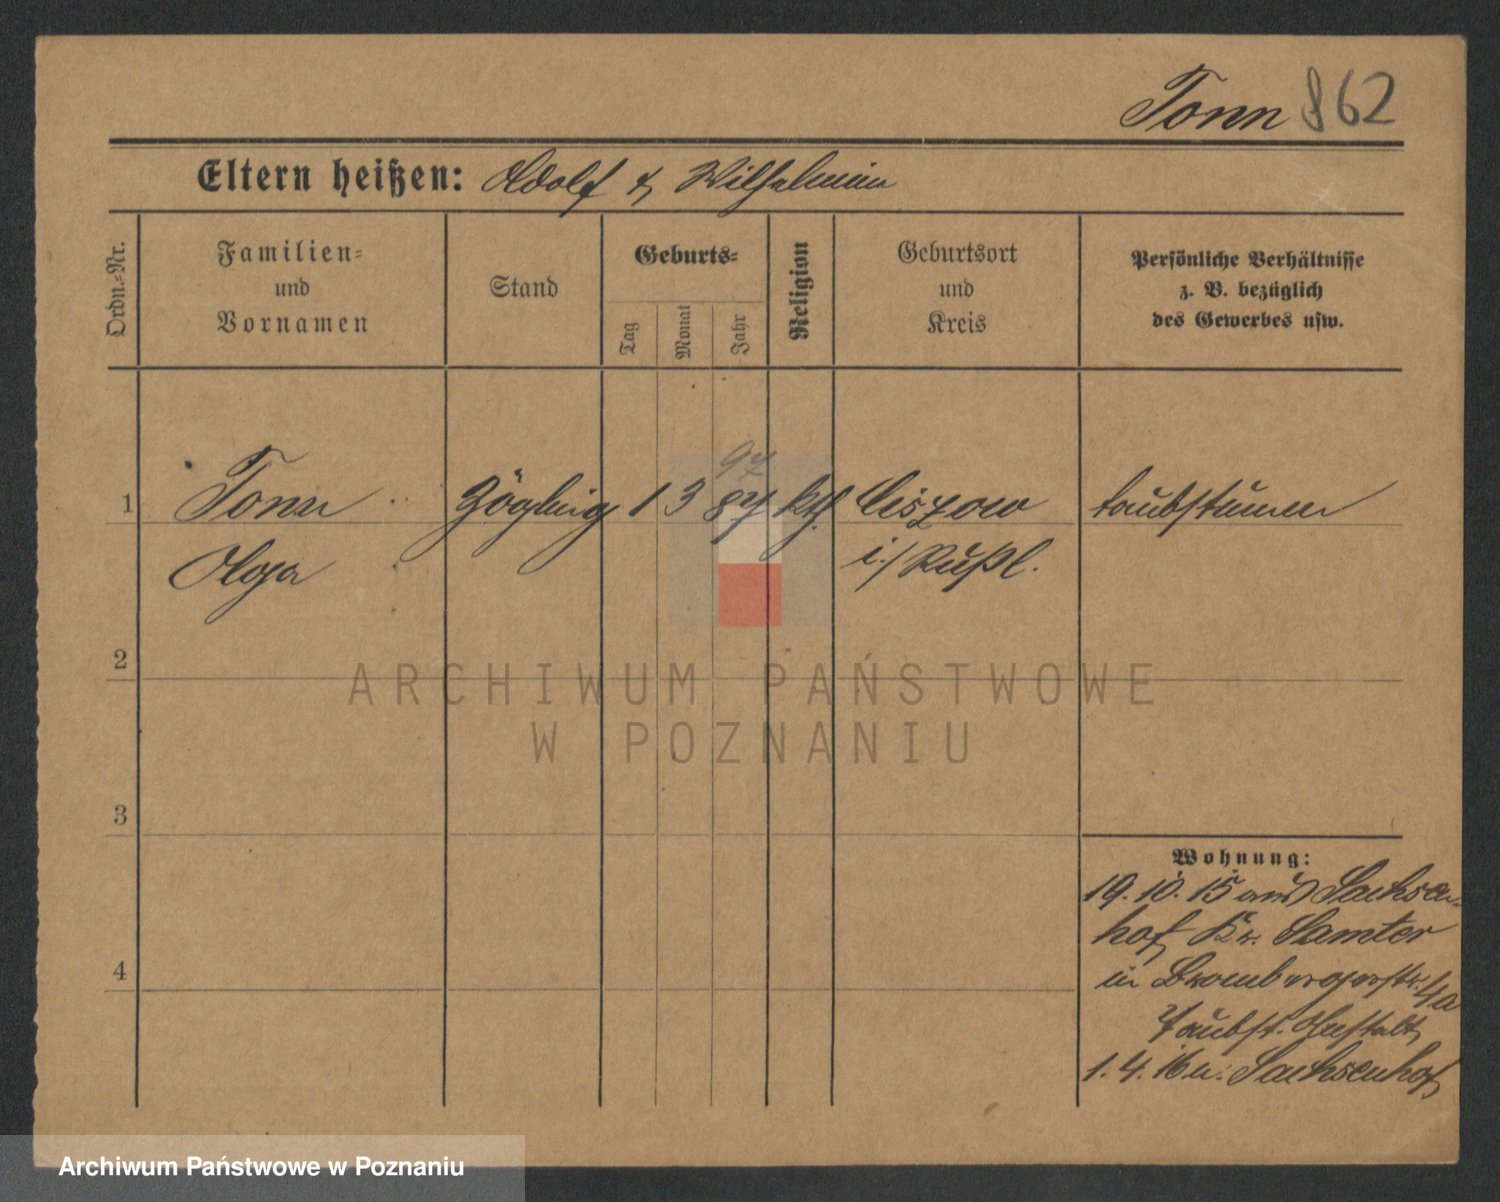 Tonn 862
Eltern heißen: Adolf & Wilhelmine
Ordn.-Nr.
Familien-
und
Vornamen
Stand
Geburts-
Tag
Monat
Jahr
Religion
Geburtsort
und
Kreis
Persönliche Verhältnisse
z. B. bezüglich
des Gewerbes usw.
97
1 Tonn Zögling 1 3 87 kth. taubstumm
Olga i./Rußl.
2
3
4
Wohnung:
19.10.15 aus Sachsen-
hof Kr. Samter
in Brombergerstr. 4a
Taubst. Anstalt
1.4.16 n. Sachsenhof
ARCHIWUM PAŃSTWOWE
W POZNANIU
Archiwum Państwowe w Poznaniu